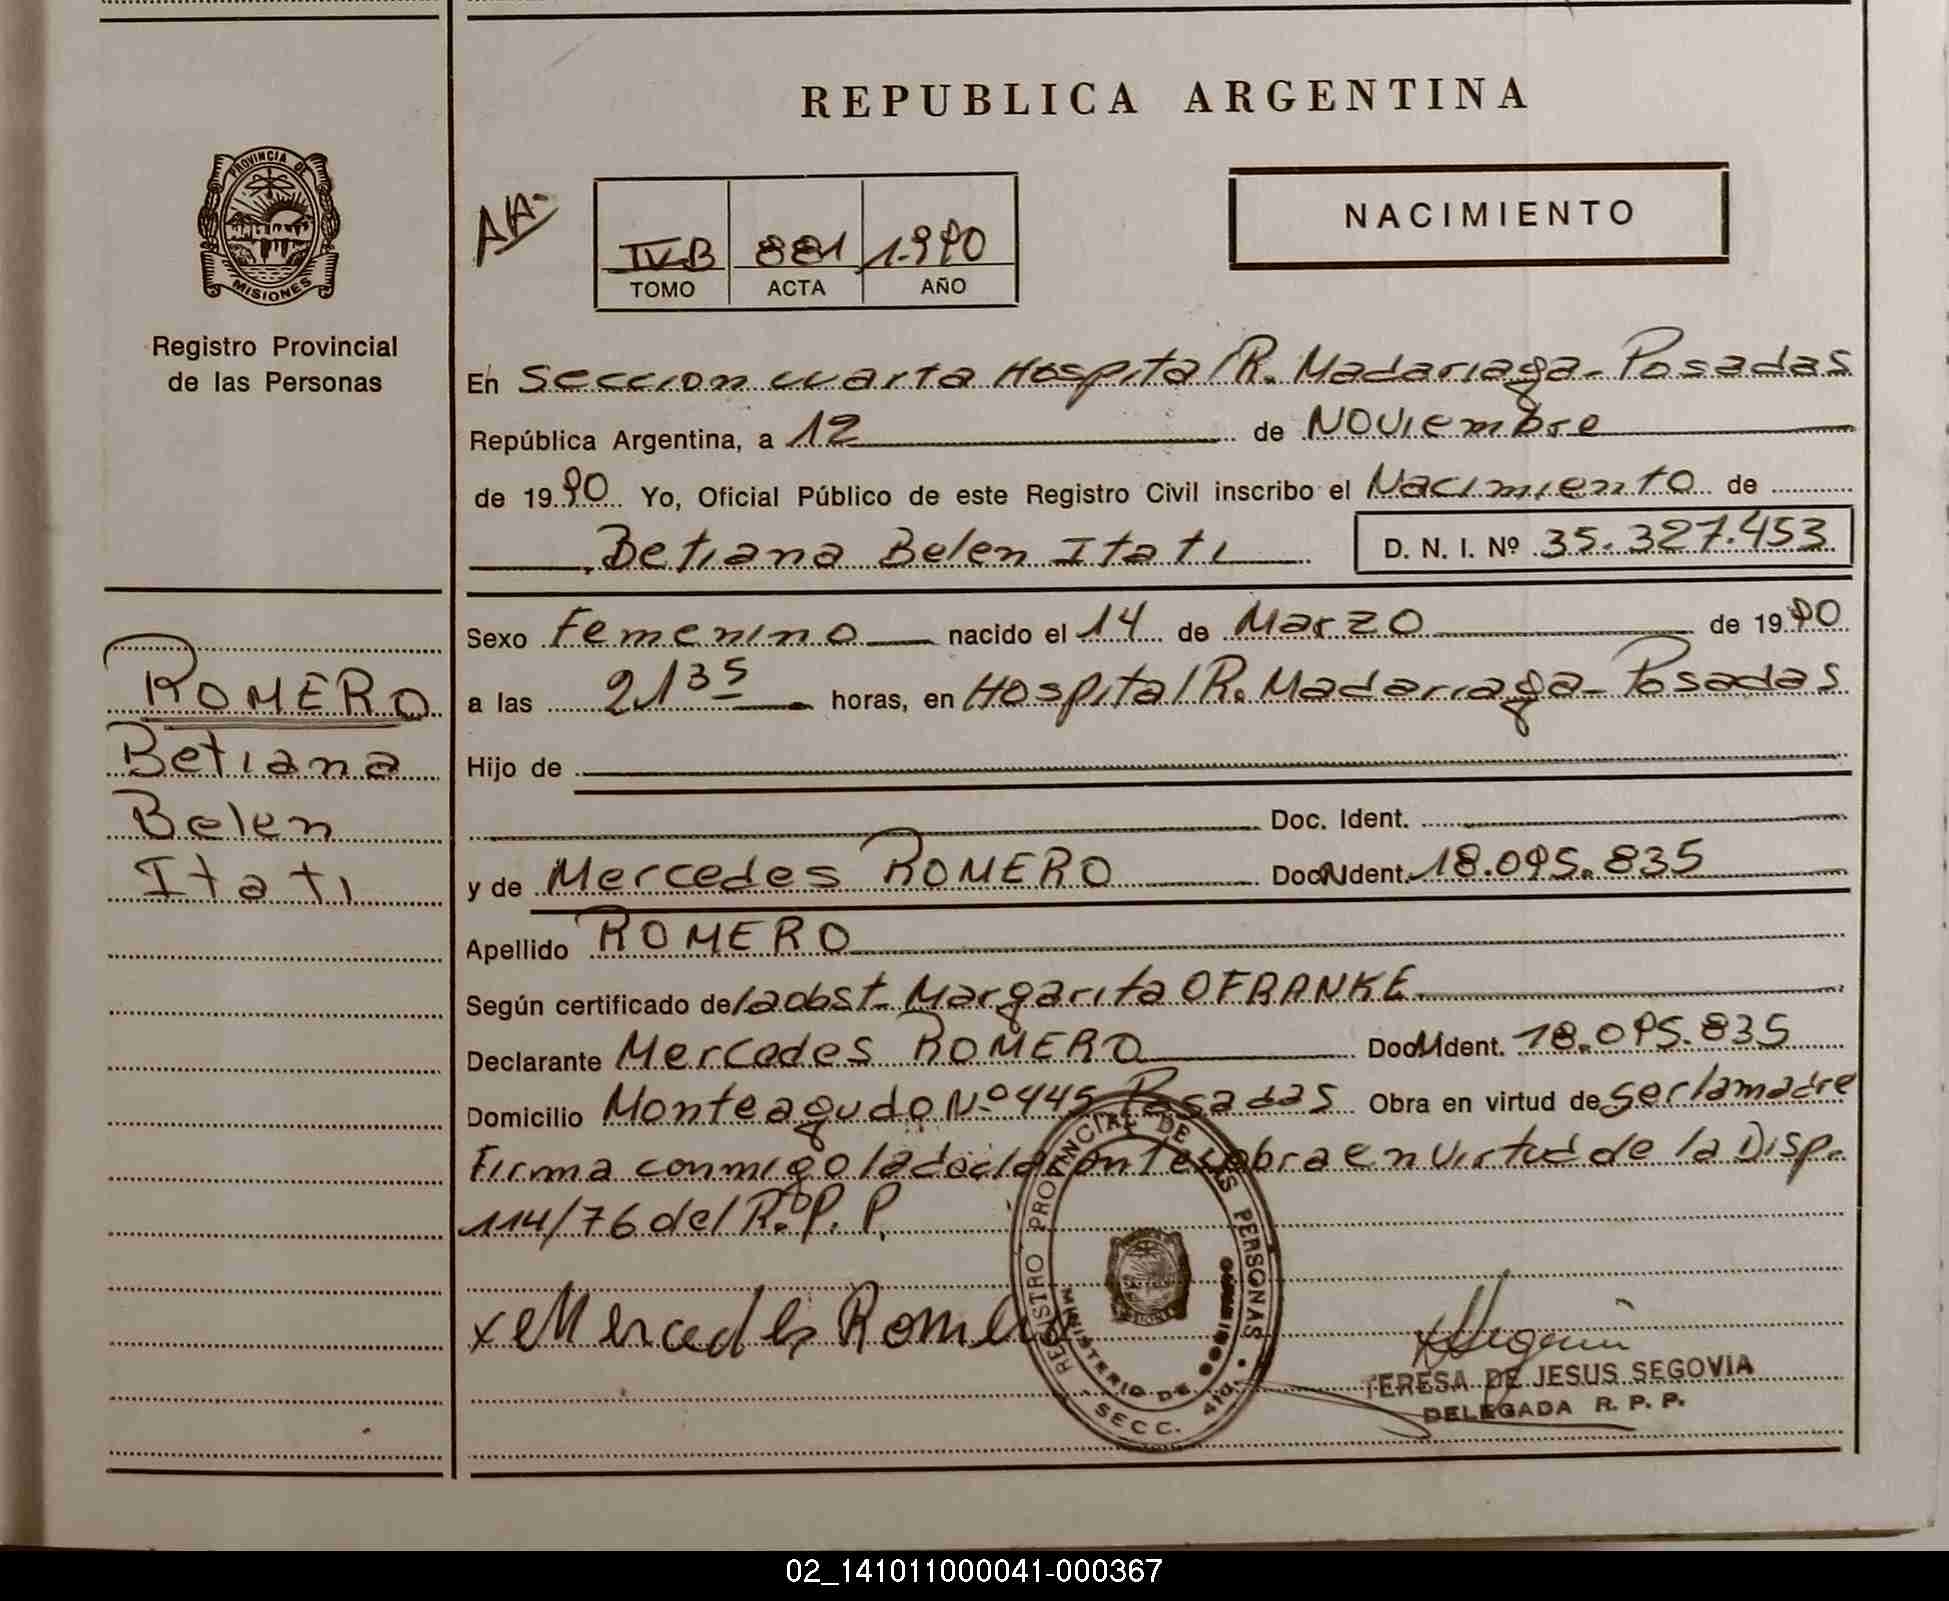 REPUBLICA ARGENTINA
PROVINCIA DE
MISIONES
Registro Provincial
de las Personas
AA-
IV-B 881 1.990
TOMO ACTA AÑO
NACIMIENTO
En Seccion cuarta Hospital R. Madariaga - Posadas
República Argentina, a 12 de Noviembre
de 1990 Yo, Oficial Público de este Registro Civil inscribo el Nacimiento de
Betiana Belen Itati D. N. I. Nº 35.327.453
Sexo Femenino nacido el 14 de Marzo de 1990
a las 21 35 horas, en Hospital R. Madariaga - Posadas
Hijo de
Doc. Ident.
y de Mercedes ROMERO Doc. Ident. 18.095.835
Apellido ROMERO
Según certificado de la obst. Margarita O FRANKE
Declarante Mercedes ROMERO Doc. Ident. 18.095.835
Domicilio Monteagudo Nº 445 Posadas Obra en virtud de ser la madre
Firma conmigo la declarante obra en virtud de la Disp.
114/76 del R. P. P.
ROMERO
Betiana
Belen
Itati
x Mercedes Romero
REGISTRO PROVINCIAL DE LAS PERSONAS
MINISTERIO DE
SECC. 4ta.
TERESA DE JESUS SEGOVIA
DELEGADA R. P. P.
02_141011000041-000367